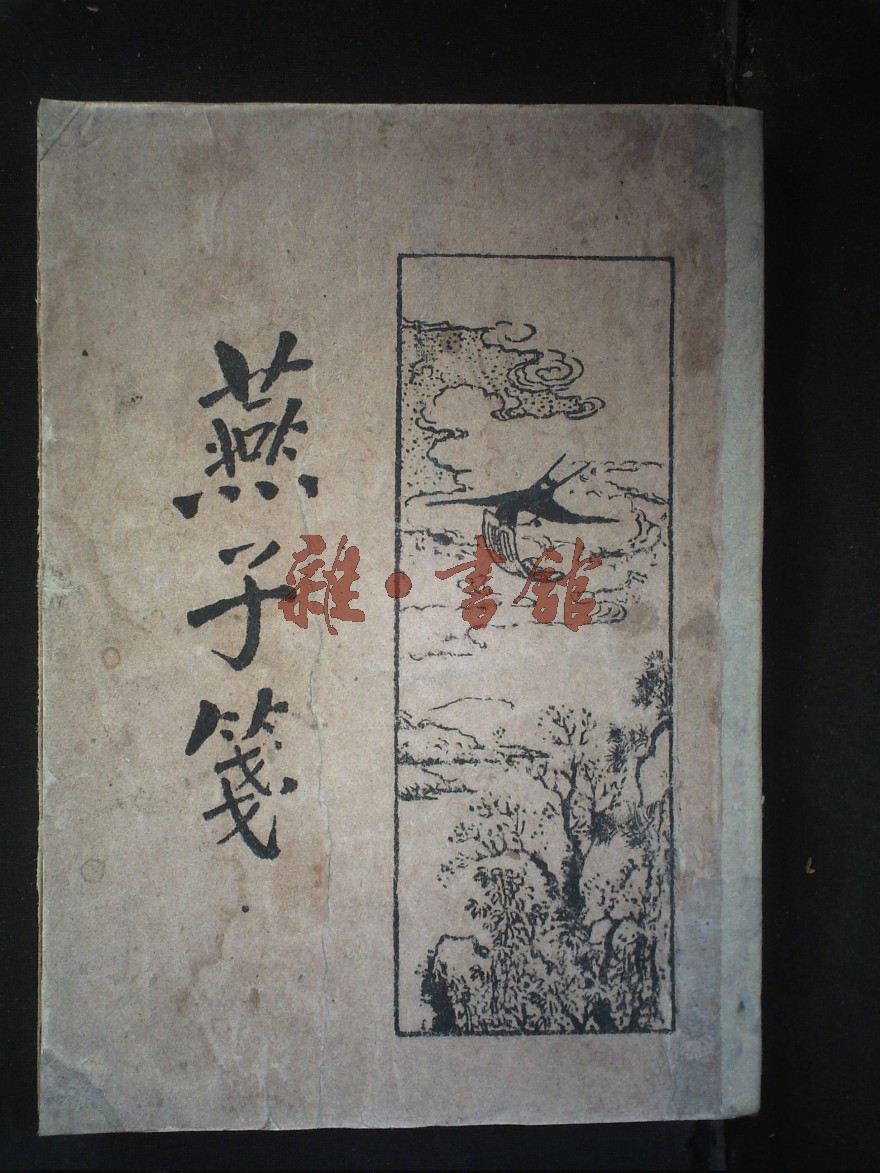 燕子箋
雜·書館